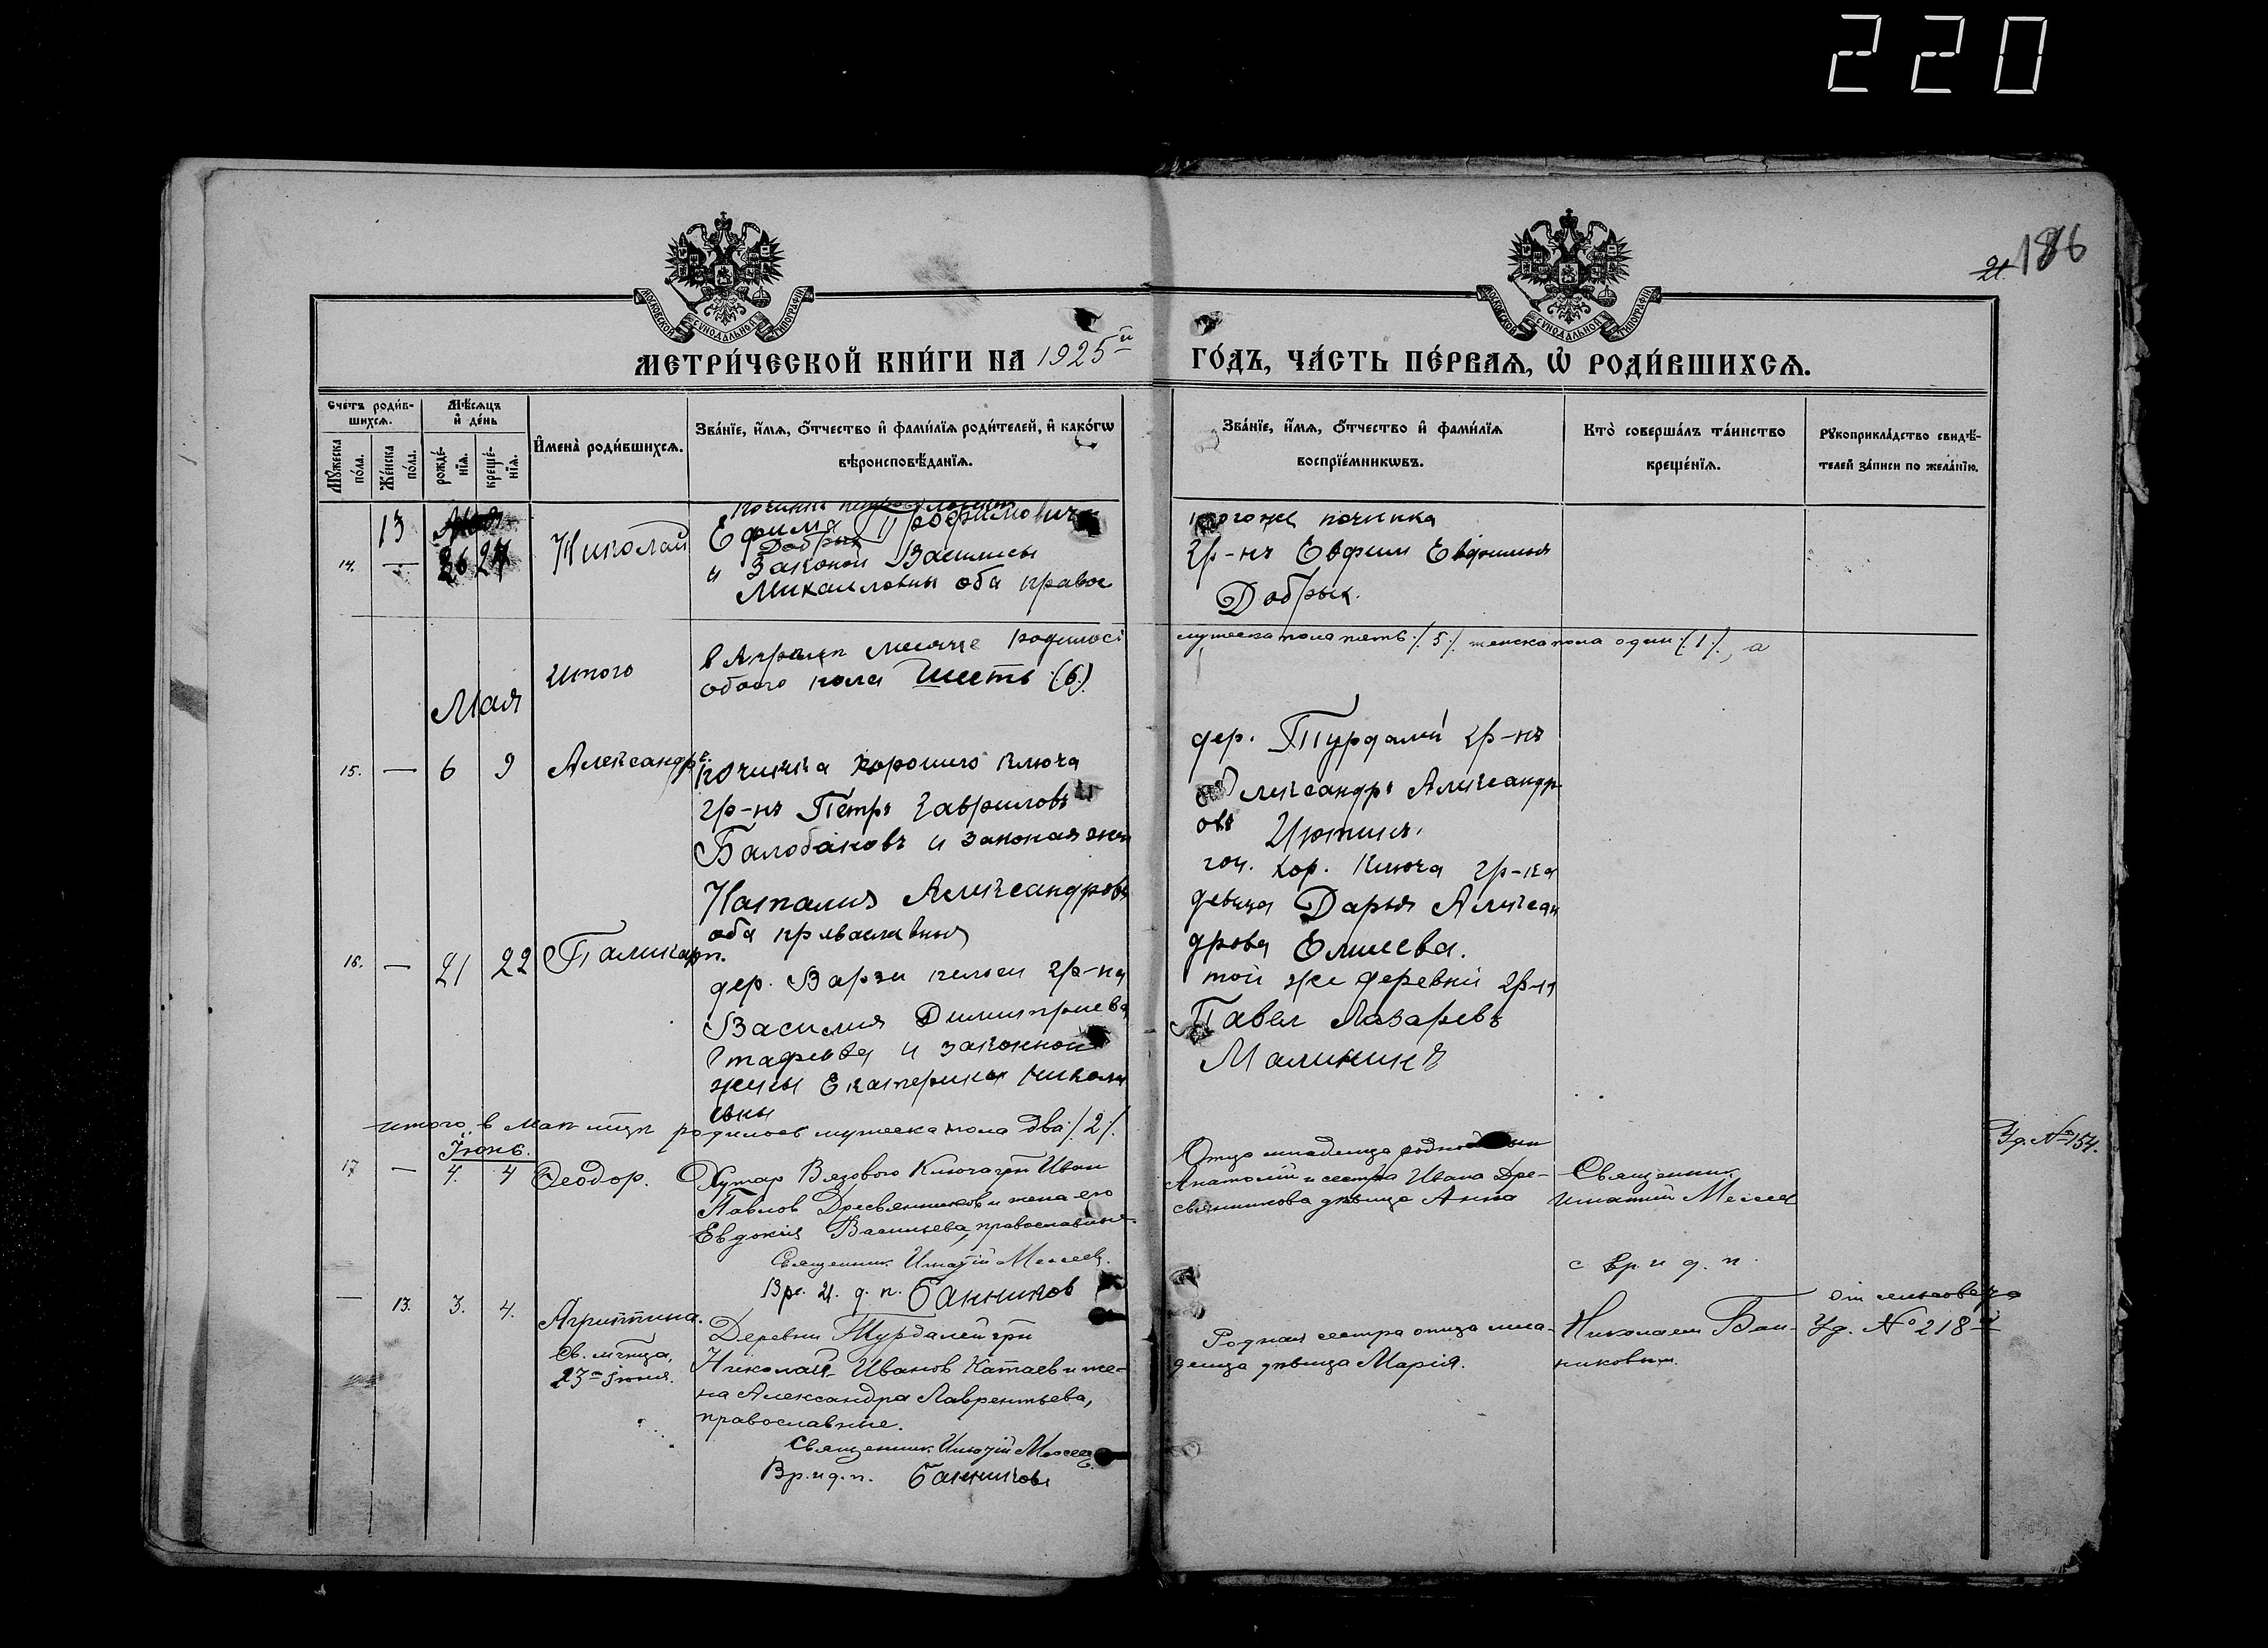 220
21 186
МОСКОВСКОЙ СУНОДАЛЬНОЙ ТИПОГРАФІИ
МОСКОВСКОЙ СУНОДАЛЬНОЙ ТИПОГРАФІИ
МЕТРИ́ЧЕСКОЙ КНИ́ГИ НА 1925й ГО́ДЪ, ЧА́СТЬ ПЕ́РВАѦ, Ѡ҆ РОДИ́ВШИХСѦ.
Счетъ роди́в-
шихсѧ.
Мꙋжеска по́ла.
Же́нска по́ла.
Мѣ́сѧцъ
и҆ де́нь
рожде́-нїѧ.
креще́-нїѧ.
И҆мена̀ роди́вшихсѧ.
Зва́нїе, и҆́мѧ, ѻ҆́тчество и҆ фами́лїѧ роди́телей, и҆ како́гѡ
вѣроисповѣ́данїѧ.
Зва́нїе, и҆́мѧ, ѻ҆́тчество и҆ фами́лїѧ
воспрїе́мникѡвъ.
Кто̀ соверша́лъ та́инство
креще́нїѧ.
Рꙋкоприкла́дство свидѣ́-
телей за́писи по жела́нїю.
13
14. — 26 27 Николай
Ефима Трофимовича
Добрых
и законой Василисы
Михаиловны оба правос
тогоже починка
гр-нъ Евфим Евфимия
Добрых.
Итого
в Апрели месяце родилось
обоего пола шесть (6)
мужеска пола пять /5/ женска пола один /1/, а
Мая
15. — 6 9 Александръ.
починка хорошаго ключа
гр-нъ Петръ Гавриловъ
Балобановъ и законая жена
Наталия Александровна
оба православныя
дер. Турдалей гр-нъ
Александръ Александр
овъ Июткин,
поч. Хор. Ключа гр-ка
девица Дарья Алексан
дрова Елисеева.
16. — 21 22 Паликарп.
дер. Варзи гр-на
Василия Димитриева
и законной
жены Екатерины Никола
евны
той же деревни гр-н
Павел Лазаревъ
Малининъ
итого в мае родилось мужеска пола два /2/.
Іюнь.
17 — 4. 4 Ѳеодор.
Хутор Вязового Ключа грн Иван
Павлов Дресвянников и жена его
Евдокия Васильева, православные
Священник Игнатій
Вр. и. д. п. Банников
Отца младенца родной
Анатолий и сестра Ивана Дре-
свянникова девица Анна
Священник
Игнатий
с вр. и д. п.
Уд. № 154.
— 13. 3. 4. Агриппина.
Св. мчица,
23го іюня.
Деревни Турдалей грн
Николай Иванов Катаев и же-
на Александра Лаврентьева,
православные.
Священник Игнатій
Вр. и д. п. Банников
Родная сестра отца мла-
денца девица Мария.
Николаем Бан-
никовым.
Уд. № 218й